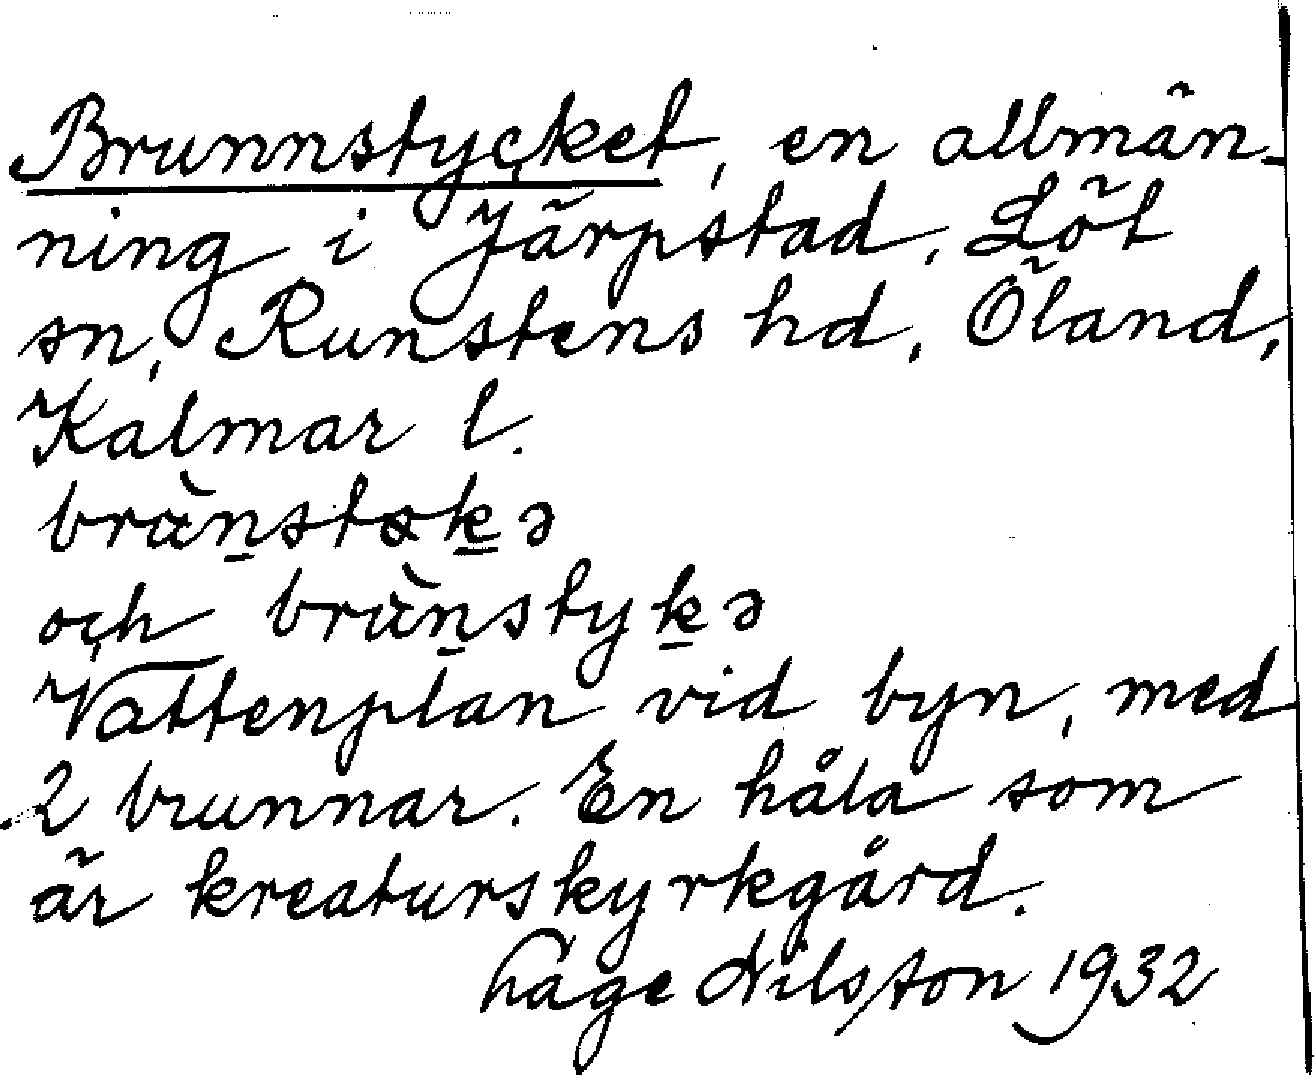 Brunnstycket, en allmän-
ning i Järpstad, Löt
sn, Runstens hd, Öland,
Kalmar l.
och
Vattenplan vid byn, med
2 brunnar. En håla som
är kreaturskyrkgård.
Håge Nilsson 1932